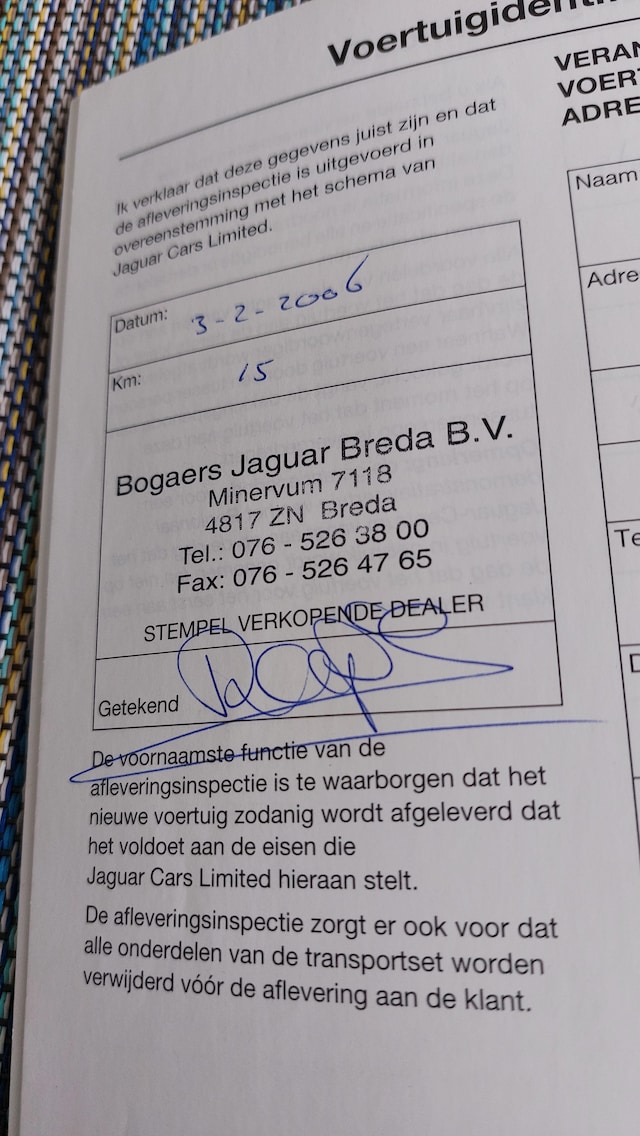 Voertuigident
Ik verklaar dat deze gegevens juist zijn en dat
de afleveringsinspectie is uitgevoerd in
overeenstemming met het schema van
Jaguar Cars Limited.
Datum: 3-2-2006
Km: 15
Bogaers Jaguar Breda B.V.
Minervum 7118
4817 ZN Breda
Tel.: 076 - 526 38 00
Fax: 076 - 526 47 65
STEMPEL VERKOPENDE DEALER
Getekend
De voornaamste functie van de
afleveringsinspectie is te waarborgen dat het
nieuwe voertuig zodanig wordt afgeleverd dat
het voldoet aan de eisen die
Jaguar Cars Limited hieraan stelt.
De afleveringsinspectie zorgt er ook voor dat
alle onderdelen van de transportset worden
verwijderd vóór de aflevering aan de klant.
VERAN
VOER
ADRE
Naam
Adre
Te